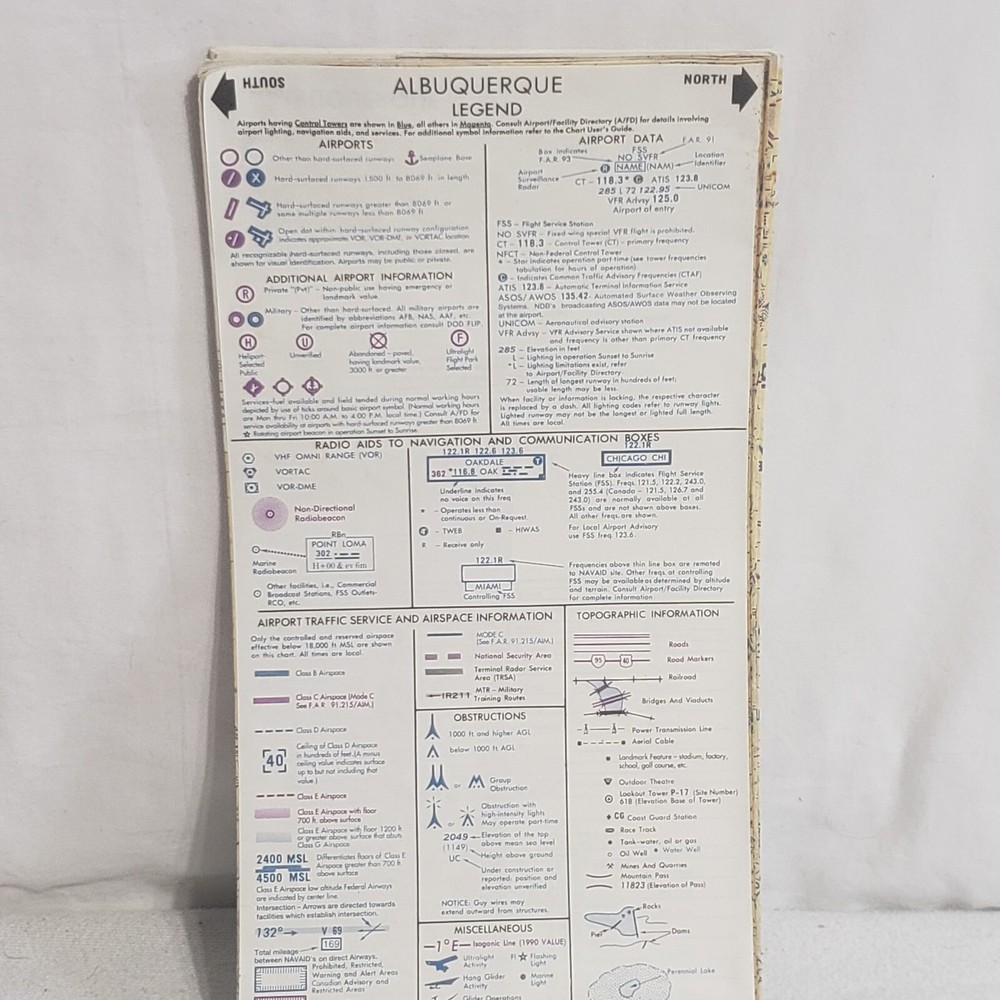 SOUTH
ALBUQUERQUE
NORTH
LEGEND
Airports having Control Towers are shown in Blue, all others in Magenta. Consult Airport/Facility Directory (A/FD) for details involving
airport lighting, navigation aids, and services. For additional symbol information refer to the Chart User's Guide.
AIRPORTS
Other than hard-surfaced runways
Seaplane Base
Hard-surfaced runways 1,500 ft. to 8069 ft. in length
Hard-surfaced runways greater than 8069 ft. or
some multiple runways less than 8069 ft.
Open dot within hard-surfaced runway configuration
indicates approximate VOR, VOR-DME, or VORTAC location
All recognizable hard-surfaced runways, including those closed, are
shown for visual identification. Airports may be public or private.
ADDITIONAL AIRPORT INFORMATION
R
Private "(Pvt)" - Non-public use having emergency or
landmark value.
Military - Other than hard-surfaced. All military airports are
identified by abbreviations AFB, NAS, AAF, etc.
For complete airport information consult DOD FLIP.
H
U
F
Heliport-
Selected
Public
Unverified
Abandoned - paved,
having landmark value,
3000 ft. or greater
Ultralight
Flight Park
Selected
Services-fuel available and field tended during normal working hours
depicted by use of ticks around basic airport symbol. (Normal working hours
are Mon thru Fri 10:00 A.M. to 4:00 P.M. local time.) Consult A/FD for
service availability at airports with hard-surfaced runways greater than 8069 ft.
☆ Rotating airport beacon in operation Sunset to Sunrise.
AIRPORT DATA
F.A.R. 91
Box indicates
F.A.R. 93
FSS
NO SVFR
Location
Identifier
R NAME (NAM)
Airport
Surveillance
Radar
CT - 118.3 * C ATIS 123.8
285 L 72 122.95
UNICOM
VFR Advsy 125.0
Airport of entry
FSS - Flight Service Station
NO SVFR - Fixed wing special VFR flight is prohibited.
CT - 118.3 - Control Tower (CT) - primary frequency
NFCT - Non-Federal Control Tower
* - Star indicates operation part-time (see tower frequencies
tabulation for hours of operation)
C - Indicates Common Traffic Advisory Frequencies (CTAF)
ATIS 123.8 - Automatic Terminal Information Service
ASOS/AWOS 135.42- Automated Surface Weather Observing
Systems. NDB's broadcasting ASOS/AWOS data may not be located
at the airport.
UNICOM - Aeronautical advisory station
VFR Advsy - VFR Advisory Service shown where ATIS not available
and frequency is other than primary CT frequency
285 - Elevation in feet
L - Lighting in operation Sunset to Sunrise
*L - Lighting limitations exist, refer
to Airport/Facility Directory.
72 - Length of longest runway in hundreds of feet;
usable length may be less.
When facility or information is lacking, the respective character
is replaced by a dash. All lighting codes refer to runway lights.
Lighted runway may not be the longest or lighted full length.
All times are local.
RADIO AIDS TO NAVIGATION AND COMMUNICATION BOXES
VHF OMNI RANGE (VOR)
VORTAC
VOR-DME
Non-Directional
Radiobeacon
RBn
POINT LOMA
302
H+00 & ev 6m
Marine
Radiobeacon
Other facilities, i.e., Commercial
Broadcast Stations, FSS Outlets-
RCO, etc.
122.1R 122.6 123.6
OAKDALE
T
362 *116.8 OAK
Underline indicates
no voice on this freq
* - Operates less than
continuous or On-Request.
- TWEB
- HIWAS
R - Receive only
122.1R
MIAMI
Controlling FSS
122.1R
CHICAGO CHI
Heavy line box indicates Flight Service
Station (FSS). Freqs. 121.5, 122.2, 243.0,
and 255.4 (Canada - 121.5, 126.7 and
243.0) are normally available at all
FSSs and are not shown above boxes.
All other freqs. are shown.
For Local Airport Advisory
use FSS freq. 123.6.
Frequencies above thin line box are remoted
to NAVAID site. Other freqs. at controlling
FSS may be available as determined by altitude
and terrain. Consult Airport/Facility Directory
for complete information.
AIRPORT TRAFFIC SERVICE AND AIRSPACE INFORMATION
Only the controlled and reserved airspace
effective below 18,000 ft. MSL are shown
on this chart. All times are local.
Class B Airspace
Class C Airspace (Mode C
See F.A.R. 91.215/AIM.)
Class D Airspace
40
Ceiling of Class D Airspace
in hundreds of feet. (A minus
ceiling value indicates surface
up to but not including that
value.)
Class E Airspace
Class E Airspace with floor
700 ft. above surface
Class E Airspace with floor 1200 ft.
or greater above surface that abuts
Class G Airspace
2400 MSL
4500 MSL
Differentiates floors of Class E
Airspace greater than 700 ft.
above surface
Class E Airspace low altitude Federal Airways
are indicated by center line.
Intersection - Arrows are directed towards
facilities which establish intersection.
132°
V 69
169
Total mileage
between NAVAID's on direct Airways.
Prohibited, Restricted,
Warning and Alert Areas
Canadian Advisory and
Restricted Areas
MODE C
(See F.A.R. 91.215/AIM.)
National Security Area
Terminal Radar Service
Area (TRSA)
IR211
MTR - Military
Training Routes
OBSTRUCTIONS
1000 ft and higher AGL
below 1000 ft AGL
or
Group
Obstruction
or
Obstruction with
high-intensity lights
May operate part-time
2049
(1149)
Elevation of the top
above mean sea level
Height above ground
UC
Under construction or
reported; position and
elevation unverified
NOTICE: Guy wires may
extend outward from structures.
MISCELLANEOUS
1°E
Isogonic Line (1990 VALUE)
Ultralight
Activity
Fl
Flashing
Light
Hang Glider
Activity
Marine
Light
Glider Operations
TOPOGRAPHIC INFORMATION
Roads
95
40
Road Markers
Railroad
Bridges And Viaducts
Power Transmission Line
Aerial Cable
Landmark Feature - stadium, factory,
school, golf course, etc.
Outdoor Theatre
Lookout Tower P-17 (Site Number)
618 (Elevation Base of Tower)
CG Coast Guard Station
Race Track
Tank-water, oil or gas
Oil Well
Water Well
Mines And Quarries
Mountain Pass
11823 (Elevation of Pass)
Rocks
Pier
Dams
Perennial Lake